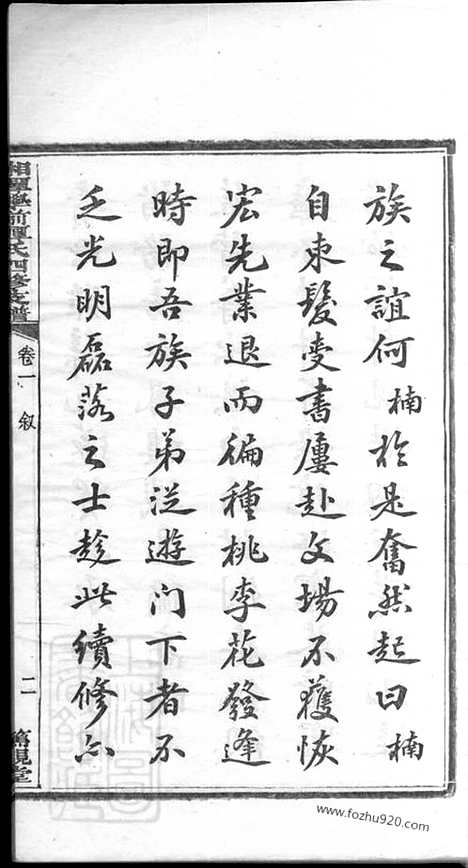 族之誼何楠於是奮然起曰楠
自束髮受書屢赴文場不獲恢
宏先業退而徧種桃李花發逢
時即吾族子弟從遊门下者不
乏光明磊落之士趁此續修亦
氏四修支譜
卷一
叙
二
www.fozhu920.com